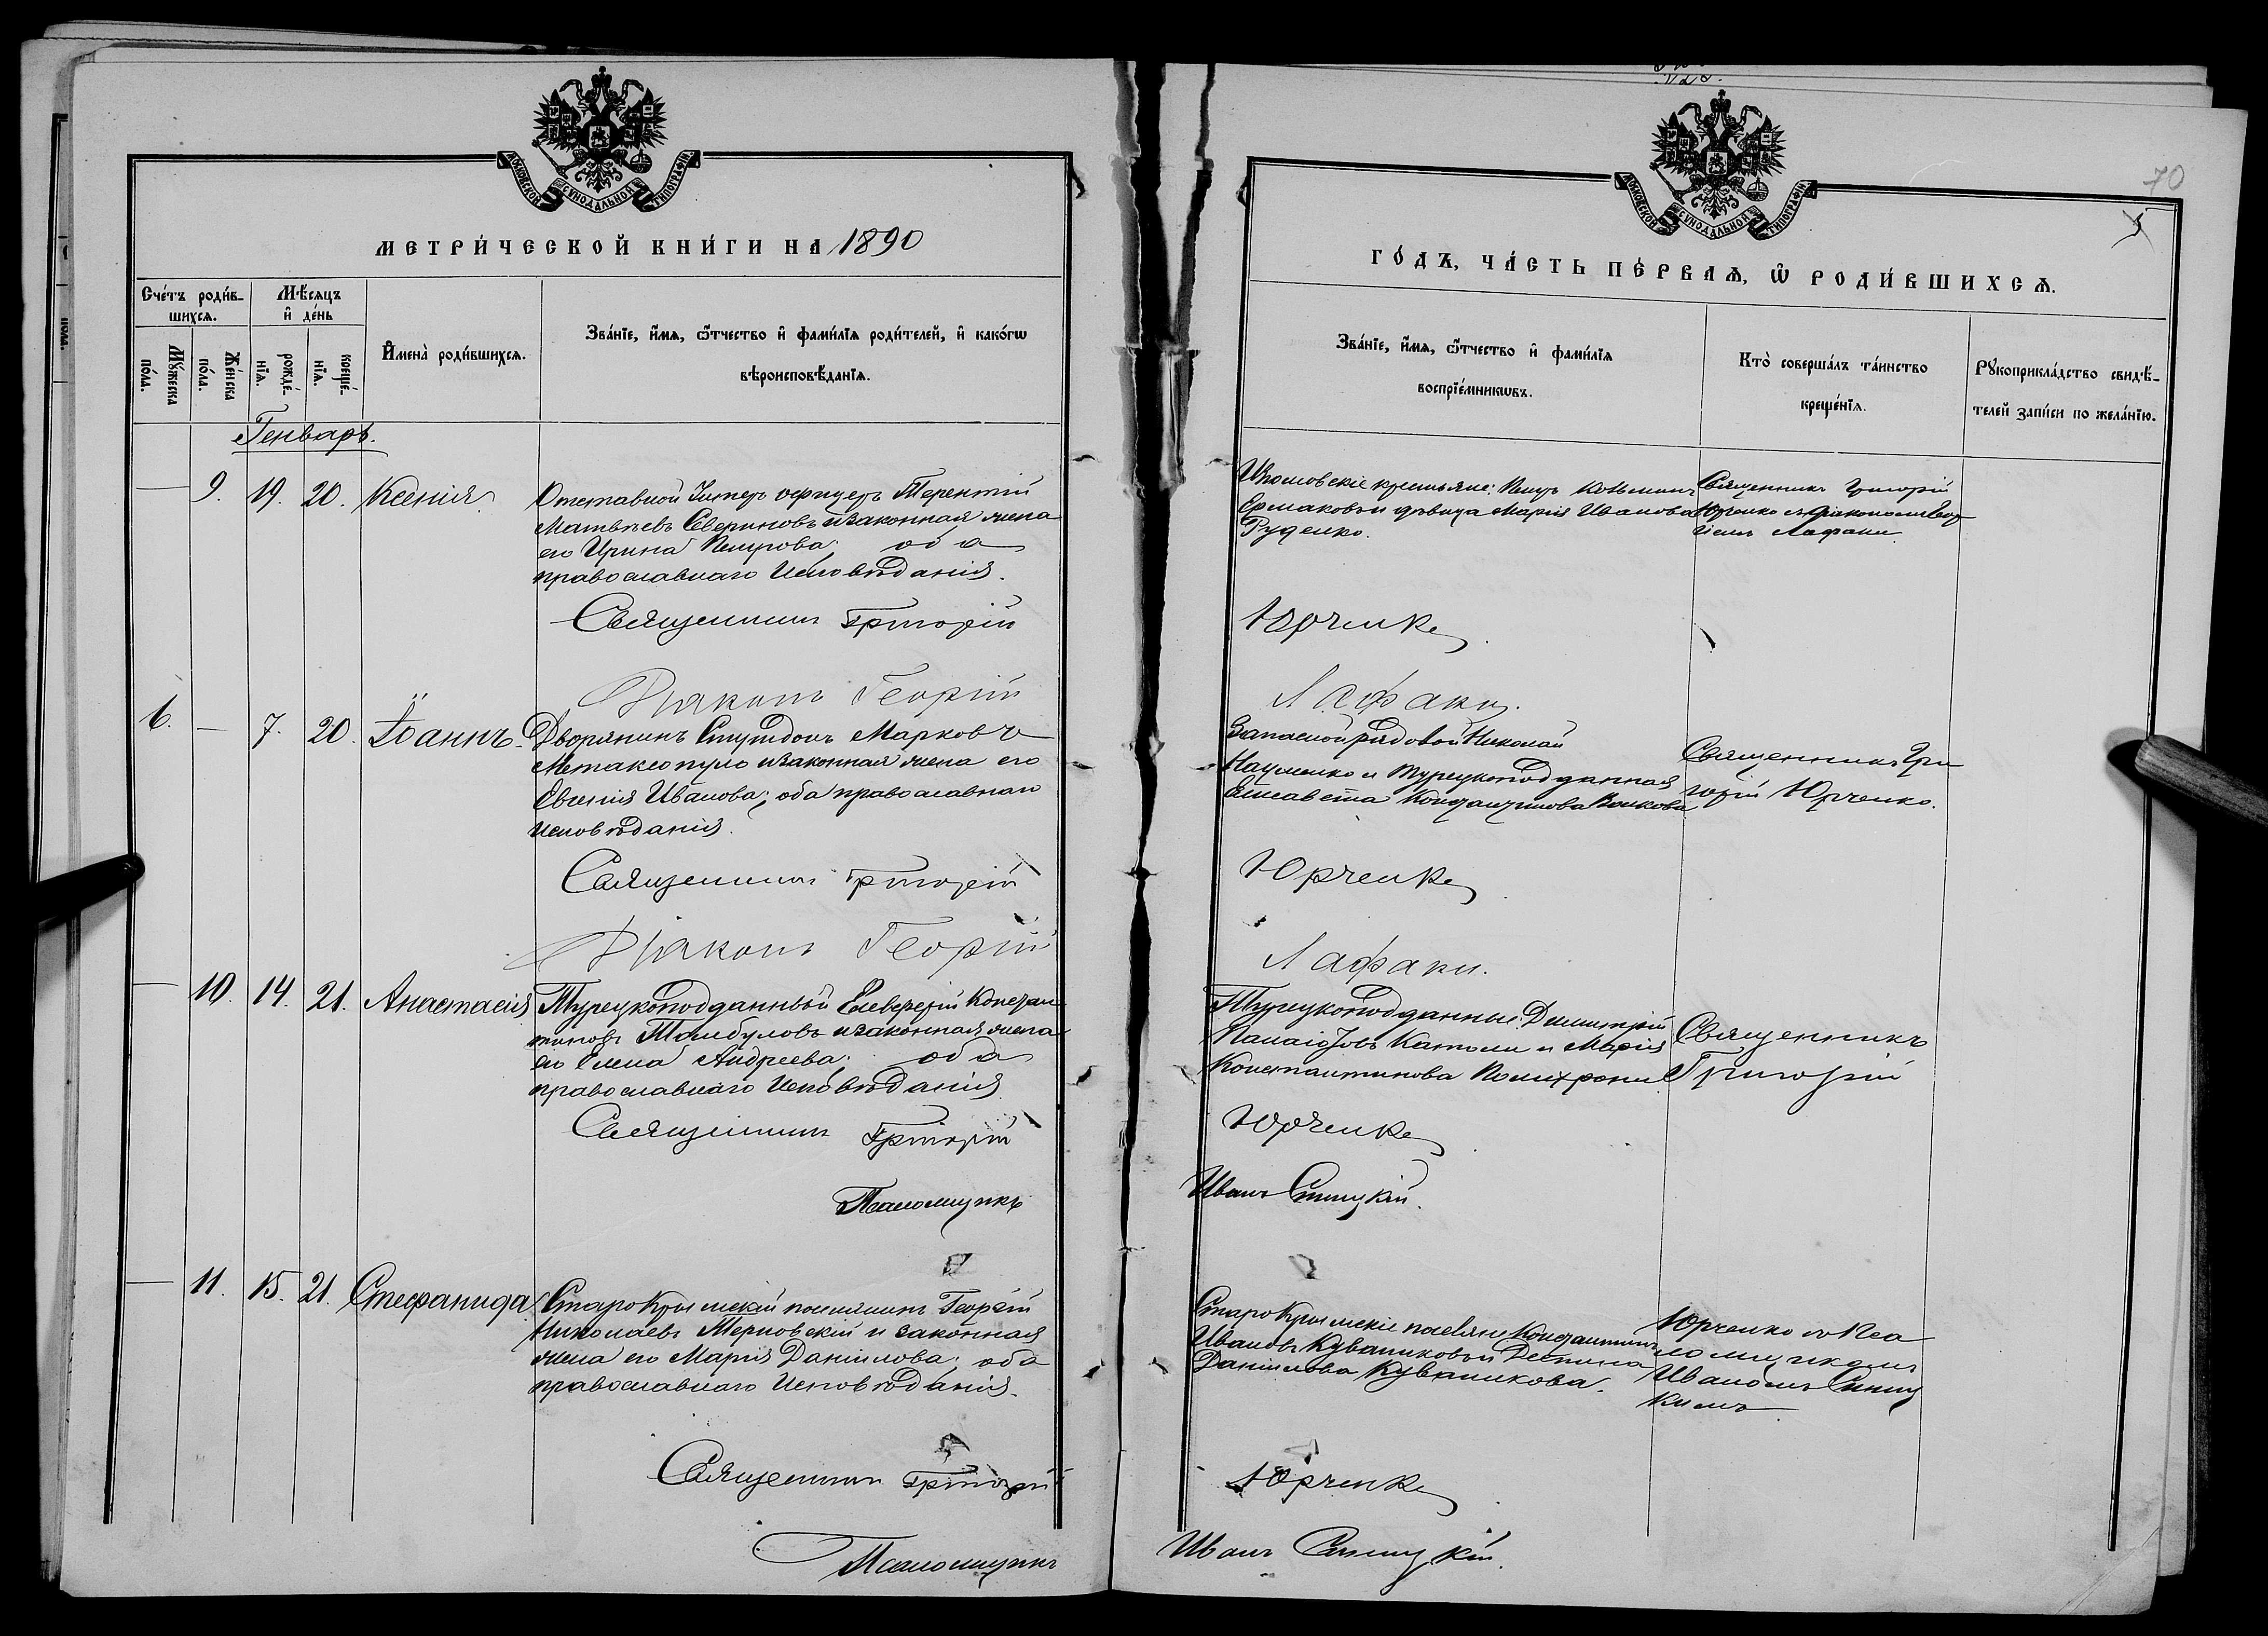 МОСКОВСКОЙ СѴНОДАЛЬНОЙ ТИПОГРАФІИ
МЕТРИ́ЧЕСКОЙ КНИ́ГИ НА 1890
Сче́тъ роди́в-
шихсѧ.
Мꙋ́жеска
по́ла.
Же́нска
по́ла.
Мѣ́сѧцъ
и҆ де́нь
рожде́-
нїѧ.
креще́-
нїѧ.
И҆мена̀ роди́вшихсѧ.
Зва́нїе, и҆́мѧ, ѻ҆́тчество и҆ фами́лїѧ роди́телей, и҆ како́гѡ
вѣроисповѣ́данїѧ.
Генварь.
— 9. 19. 20. Ксенія
Отставной Унтеръ офицеръ Терентій
Матвѣевъ Севериновъ и законная жена
его Ирина Петрова; оба
православнаго Исповѣданія.
Священникъ Григорій
Діяконъ Георгій
6. — 7. 20. Іоаннъ
Дворянинъ Спиридонъ Марковъ
Метаксопуло и законная жена его
Евгенія Иванова; оба православнаго
исповѣданія.
Священникъ Григорій
Діяконъ Георгій
— 10. 14. 21. Анастасія
Турецкоподданный Елевферій Констан
тиновъ Тамбуловъ и законная жена
его Елена Андреева; оба
православнаго Исповѣданія
Священникъ Григорій
Псаломщикъ
— 11. 15. 21. Стефанида
СтароКрымскій поселянинъ Георгій
Николаевъ Терновскій и законная
жена его Марія Даніилова; оба
православнаго Исповѣданія.
Священникъ Григорій
Псаломщикъ
70
МОСКОВСКОЙ СѴНОДАЛЬНОЙ ТИПОГРАФІИ
ГО́ДЪ, ЧА́СТЬ ПЕ́РВАѦ, Ѡ҆ РОДИ́ВШИХСѦ.
Зва́нїе, и҆́мѧ, ѻ҆́тчество и҆ фами́лїѧ
воспрїе́мникѡвъ.
Кто̀ соверша́лъ та́инство
креще́нїѧ.
Рꙋкоприкла́дство свидѣ́-
телей за́писи по жела́нїю.
крестьяне: Петръ Козьминъ
Ермаковъ и дѣвица Марія Иванова
Руденко.
Священникъ Григорій
Юрченко съ діакономъ Геор
гіемъ Лафаки
Юрченко
Лафаки.
Запасной рядовой Николай
Науменко и Турецкоподданная
Елисавета Константинова Волкова
Священникъ Гри
горій Юрченко.
Юрченко
Лафаки.
Турецкоподданные: Димитрій
Панаіотовъ Католи и Марія
Константинова Полихрони
Священникъ
Григорій
Юрченко
Иванъ Синицкій.
СтароКрымскіе поселяне Константинъ
Ивановъ Куваликовъ и Деспина
Даніилова Куваликова.
Юрченко съ Пса
ломщикомъ
Иваномъ Синиц
кимъ
Юрченко
Иванъ Синицкій.